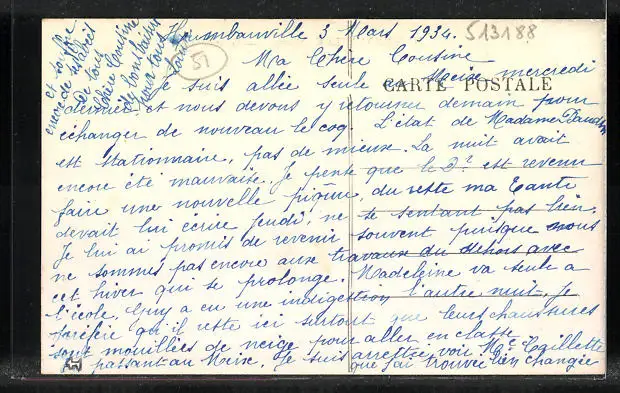 Houmbauville 3 Mars 1934.
513188
51
Ma Chère Cousine
Je suis allée seule au Meix mercredi
CARTE POSTALE
dernier et nous devons y retourner demain pour
échanger de nouveau le coq. L'état de Madame
est stationnaire, pas de mieux. La nuit avait
encore été mauvaise. Je pense que le Dr est revenu
faire une nouvelle piqûre, du reste ma Tante
devait lui écrire jeudi, ne se sentant pas bien.
Je lui ai promis de revenir souvent puisque nous
ne sommes pas encore aux travaux du dehors avec
cet hiver qui se prolonge. Madeleine va seule à
l'école. Guy a eu une indigestion l'autre nuit. Je
préfère qu'il reste ici surtout que leurs chaussures
sont mouillées de neige pour aller en classe
En passant au Meix, je suis arrêtée voir Mme Cogillette
que j'ai trouvée bien changée
et souffre
encore de
De tous
Chère Cousine
de bons baisers
pour tous